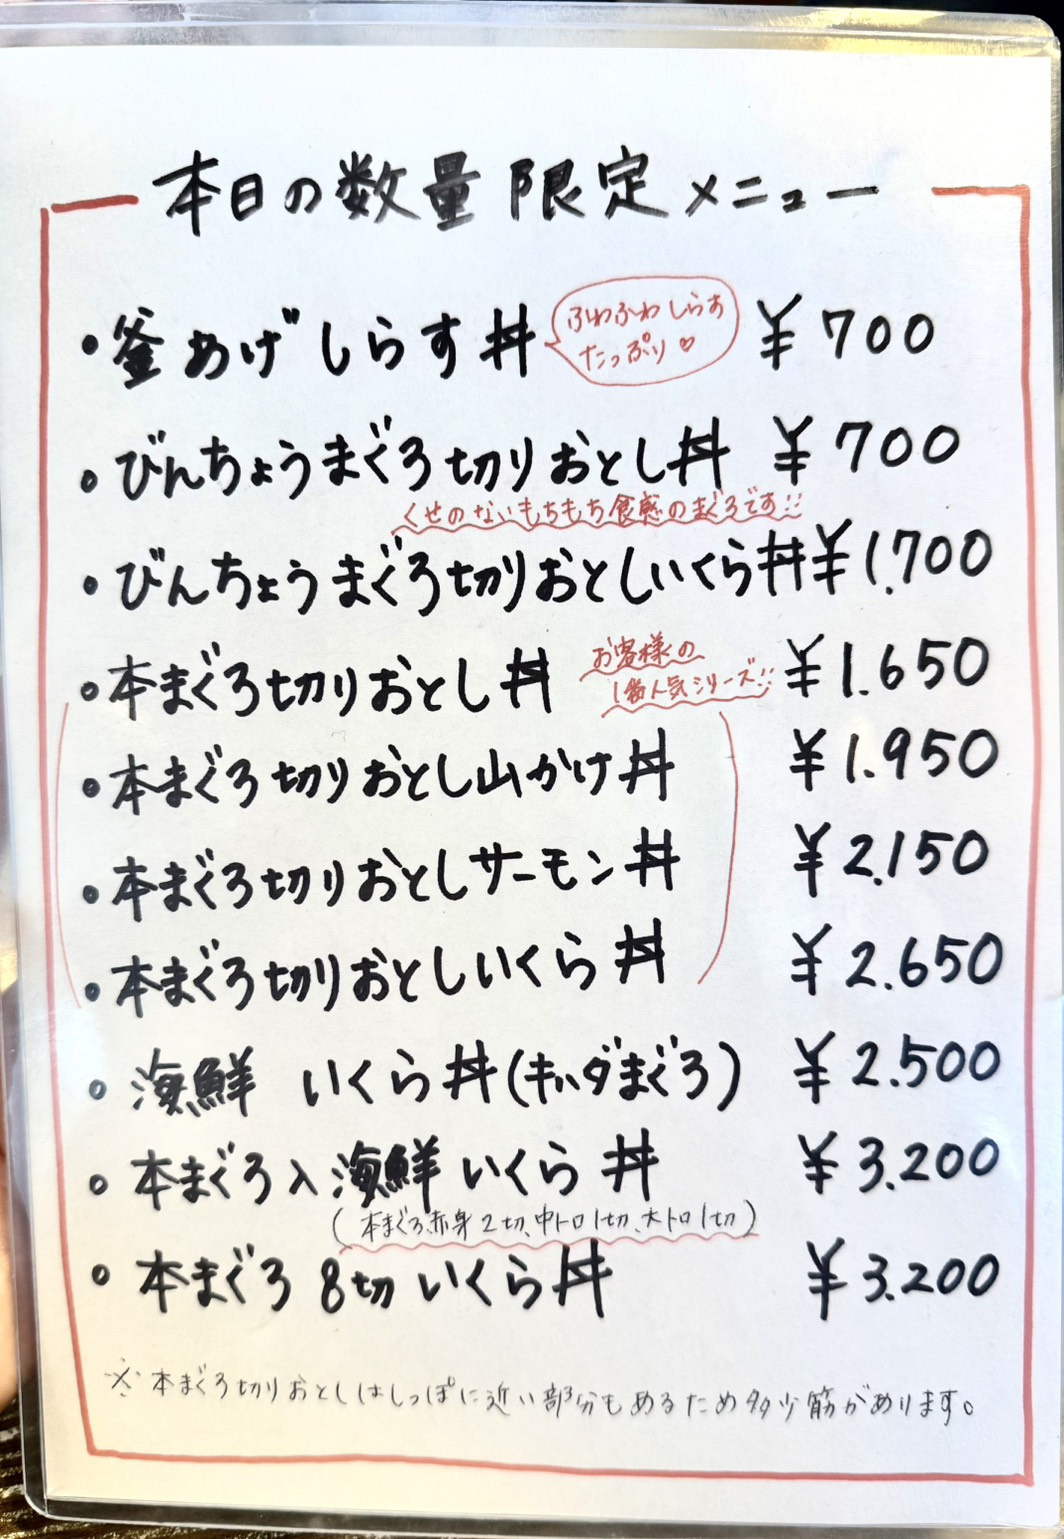 本日の数量限定メニュー
・釜あげしらす丼 ¥700
ふわふわしらす
たっぷり♡
・びんちょうまぐろ切りおとし丼 ¥700
くせのないもちもち食感のまぐろです!!
・びんちょうまぐろ切りおとしいくら丼 ¥1.700
・本まぐろ切りおとし丼 ¥1.650
お客様の
1番人気シリーズ!!
・本まぐろ切りおとし山かけ丼 ¥1.950
・本まぐろ切りおとしサーモン丼 ¥2.150
・本まぐろ切りおとしいくら丼 ¥2.650
・海鮮 いくら丼(キハダまぐろ) ¥2.500
・本まぐろ入海鮮いくら丼 ¥3.200
(本まぐろ赤身2切、中トロ1切、大トロ1切)
・本まぐろ8切いくら丼 ¥3.200
※本まぐろ切りおとしはしっぽに近い部分もあるため多少筋があります。